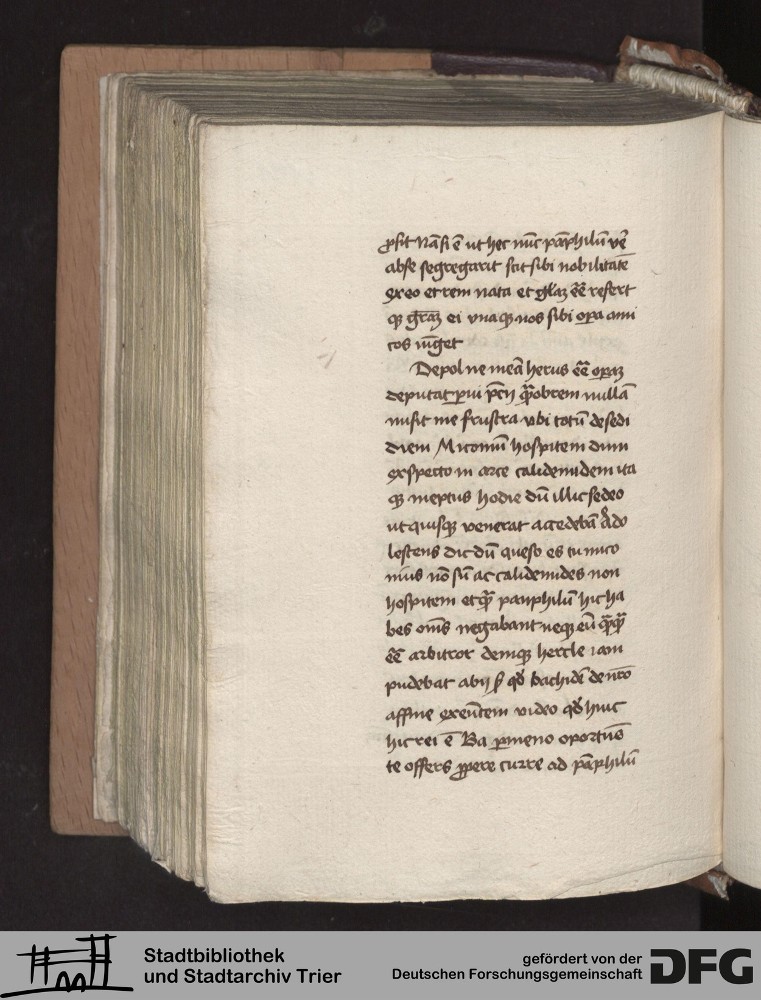 ꝓsit Nā si ē ut hec nūc pāphilū ve͞
abse segregarit scit sibi nobilitatē
ex eo et rem nata et gl͞az e͞e͞ refert
qꝫ gr͞az ei vnaqꝫ nos sibi oꝑa ami
cos iu͞get
Depol ne meā herus e͞e͞ oꝑaꝫ
deputat ꝑui p͞cij q͞obrem nullā
misit me frustra vbi totū desedi
diem Miconiū hospitem dum
exspecto in arce calidemidem ita
qꝫ ineptus hodie dū illic sedeo
ut quisqꝫ venerat accedebā Ado
lescens dic dū queso es tu mico
nius nō sū ac calidemides non
hospitem ecq͞ panphilū hic ha
bes om͞s negabant neqꝫ eū q͞q͞
e͞e͞ arbitror deniqꝫ hercle iam
pudebat abij s͛ qd͛ bachidē de nr͞o
affine exeu͞tem video qd͛ huic
hic rei ē Ba ꝑmeno oportuē
te offers ꝓpere curre ad pāphilū
Stadtbibliothek
und Stadtarchiv Trier
gefördert von der
Deutschen Forschungsgemeinschaft
DFG